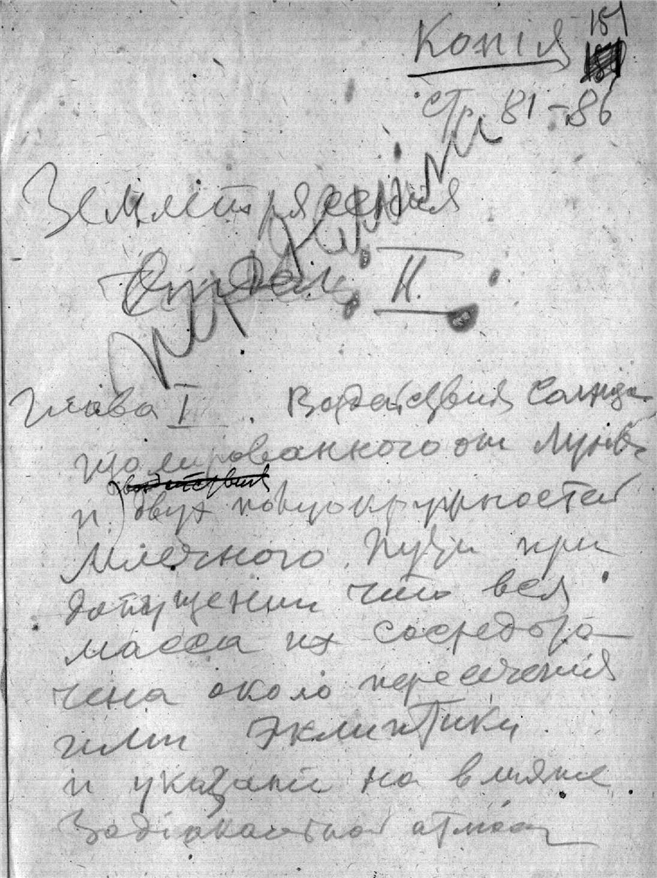 Копія 151
стр. 81-86
Землетрясенія
Отдѣл II.
Глава I. Воздействия Солнца,
изолированного от Луны
и двух полуокружностей
Млечного Пути при
допущении что вся
масса их сосредото-
чена около пересечения
ими эклиптики
и указание на влияние
Зодіакальной атмос